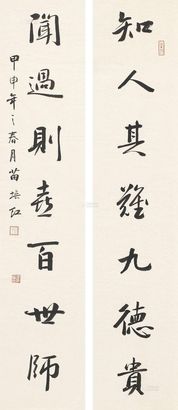 知人其難九德貴
聞過則喜百世師
甲申年之春月苗培红